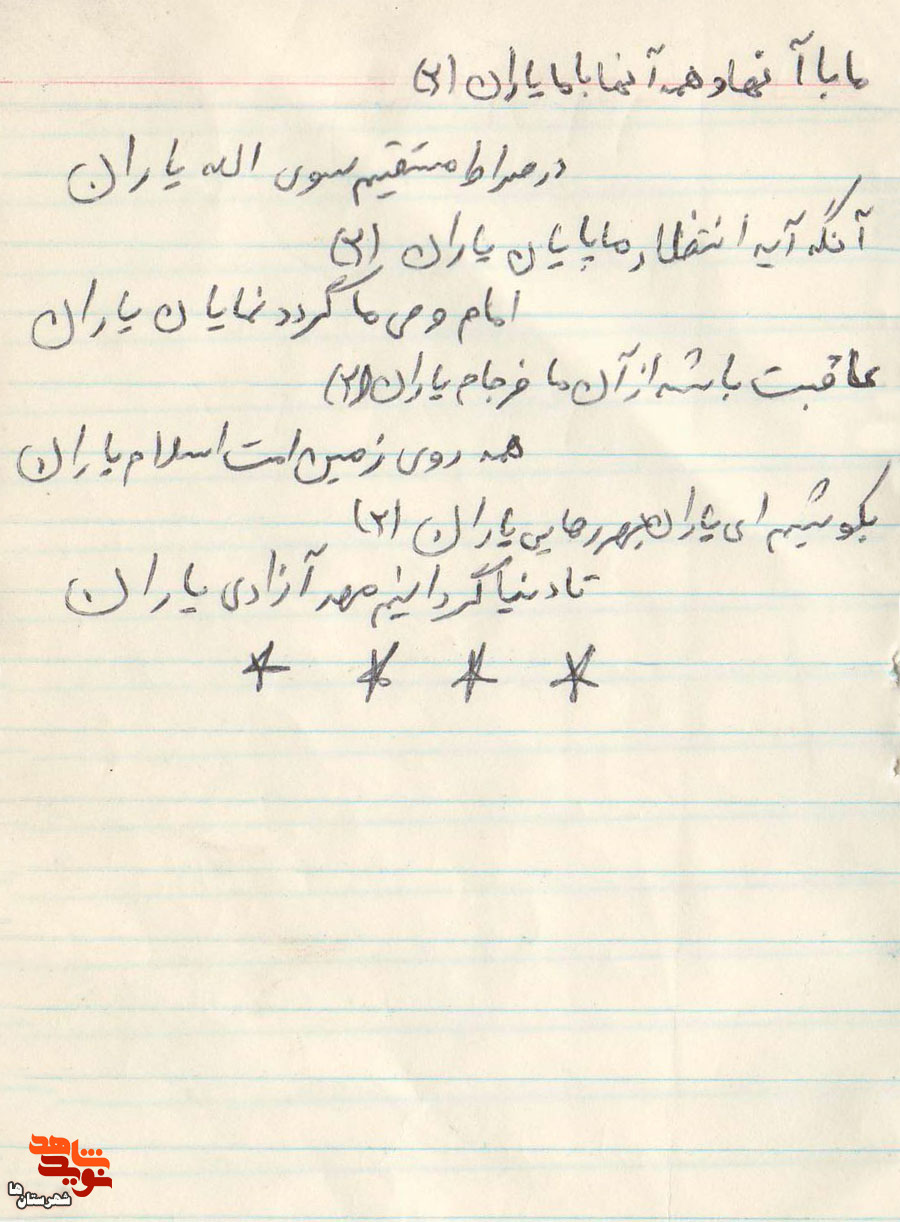 ما با آنها و همه آنها با ما یاران (۲)
در صراط مستقیم سوی الله یاران
آنگه آید انتظار ما پایان یاران (۲)
امام و حی ما گردد نمایان یاران
عاقبت باشد از آن ما فرجام یاران (۲)
همه روی زمین امت اسلام یاران
بکوشیم ای یاران بهر رهایی یاران (۲)
تا دنیا گردانیم مهد آزادی یاران
* * * *
نوید شاهد
شهرستان‌ها